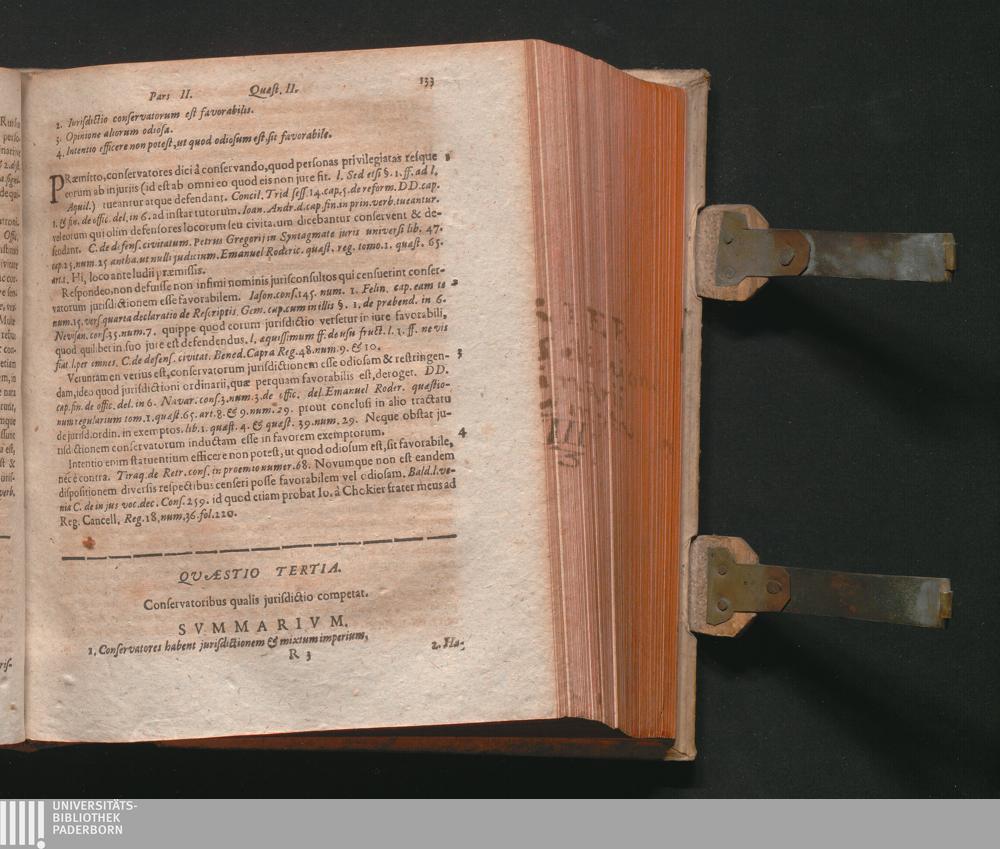 Pars II. Quæst. II. 133
2. Iurisdictio conservatorum est favorabilis.
3. Opinione aliorum odiosa.
4. Intentio efficere non potest, ut quod odiosum est, sit favorabile.
PRæmitto, conservatores dici â conservando, quod personas privilegiatas resque 1
eorum ab injuriis (id est ab omni eo quod eis non jure fit. l. Sed etsi §. 1. ff. ad l.
Aquil.) tueantur atque defendant. Concil. Trid sess. 14. cap. 5. de reform. DD. cap.
1. & fin. de offic. del. in 6. ad instar tutorum. Ioan. Andr. d. cap fin. in prin. verb. tueantur.
vel eorum qui olim defensores locorum seu civitatum dicebantur conservent & de-
fendant. C. de defens. civitatum. Petrus Gregorij in Syntagmate juris universi lib. 47.
cap. 25. num. 25 antha. ut nulli judicium. Emanuel Roderic. quæst. reg. tomo. 1. quæst. 65.
art. 1. Hi, loco ante ludii præmissis.
Respondeo, non defuisse non infimi nominis jurisconsultos qui censuerint conser-
vatorum jurisdictionem esse favorabilem. Iason. cons. 145. num. 1. Felin. cap. eam te 2
num. 15. vers. quarta declaratio de Rescriptis. Gem. cap. cum in illis §. 1. de præbend. in 6.
Nevisan. cons. 35. num. 7. quippe quod eorum jurisdictio versetur in jure favorabili,
quod quilibet in suo jure est defendendus. l. æquissimum ff. de usu fruct. l. 3. ff. ne vis
fiat. l. per omnes. C. de defens. civitat. Bened. Capra Reg. 48. num. 9. & 10.
Veruntamen verius est, conservatorum jurisdictionem esse odiosam & restringen- 3
dam, ideo quod jurisdictioni ordinarii, quæ perquam favorabilis est, deroget. DD.
cap. fin. de offic. del. in 6. Navar. cons. 3. num. 3. de offic. del. Emanuel Roder. quæstio-
num regularium tom. 1. quæst. 65. art. 8. & 9. num. 29. prout conclusi in alio tractatu
de jurisd. ordin. in exemptos. lib. 1. quæst. 4. & quæst. 39. num. 29. Neque obstat ju-
risdictionem conservatorum inductam esse in favorem exemptorum.
Intentio enim statuentium efficere non potest, ut quod odiosum est, sit favorabile, 4
nec è contra. Tiraq. de Retr. cons. in proemio numer. 68. Novumque non est eandem
dispositionem diversis respectibus censeri posse favorabilem vel odiosam. Bald. l. ve-
nia C. de in jus voc. dec. Cons. 259. id quod etiam probat Io. â Chokier frater meus ad
Reg. Cancell. Reg. 18. num. 36. fol. 220.
QVÆSTIO TERTIA.
Conservatoribus qualis jurisdictio competat.
SVMMARIVM.
1. Conservatores habent jurisdictionem & mixtum imperium,
R 3 2. Ha-
UNIVERSITÄTS-
BIBLIOTHEK
PADERBORN